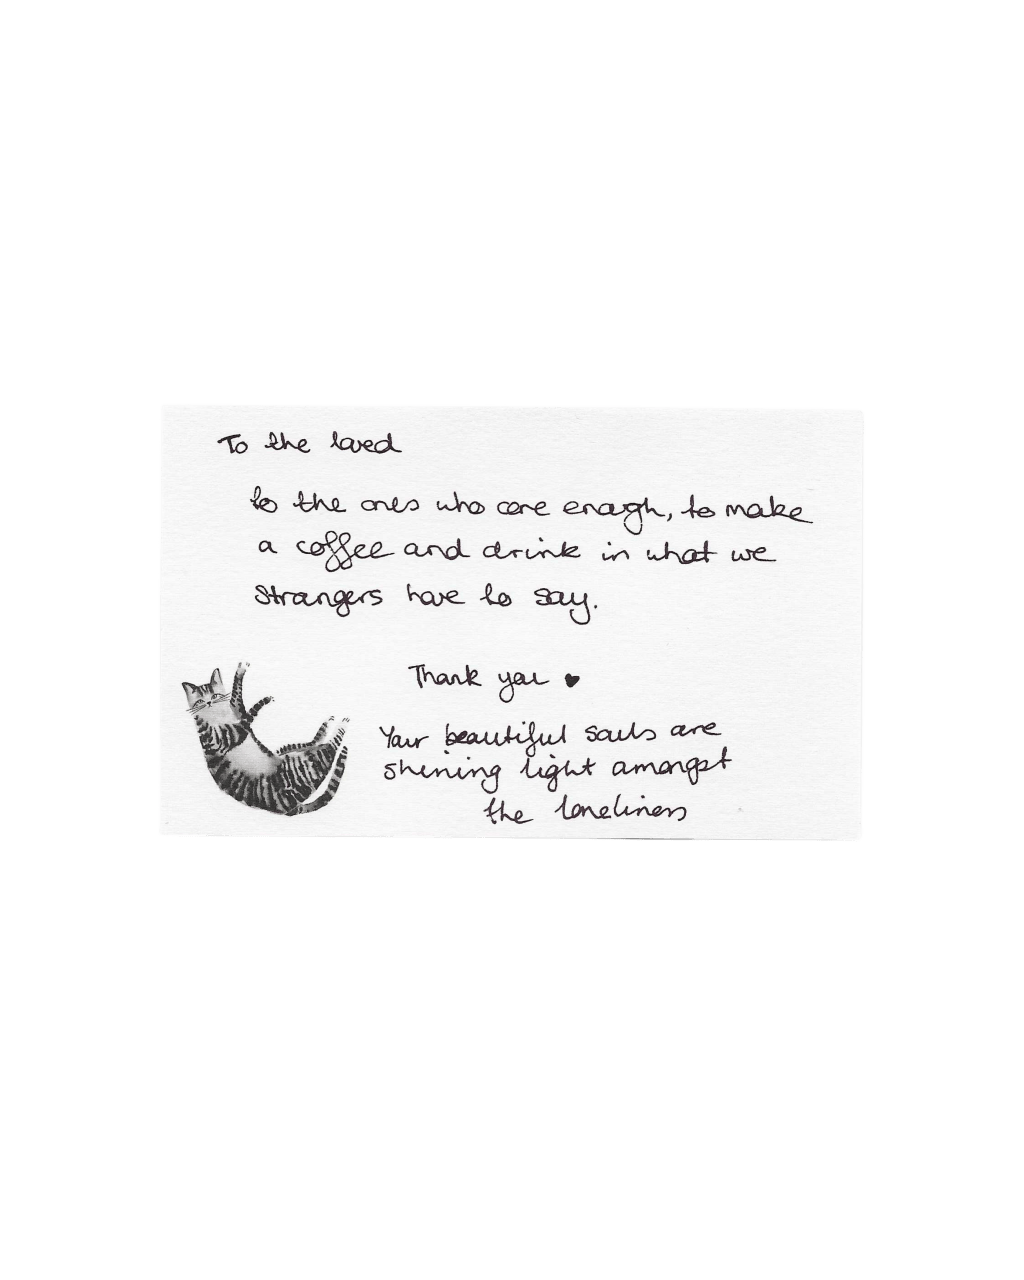 To the loved
to the ones who care enough, to make
a coffee and drink in what we
strangers have to say.
Thank you ♥
Your beautiful souls are
shining light amongst
the loneliness